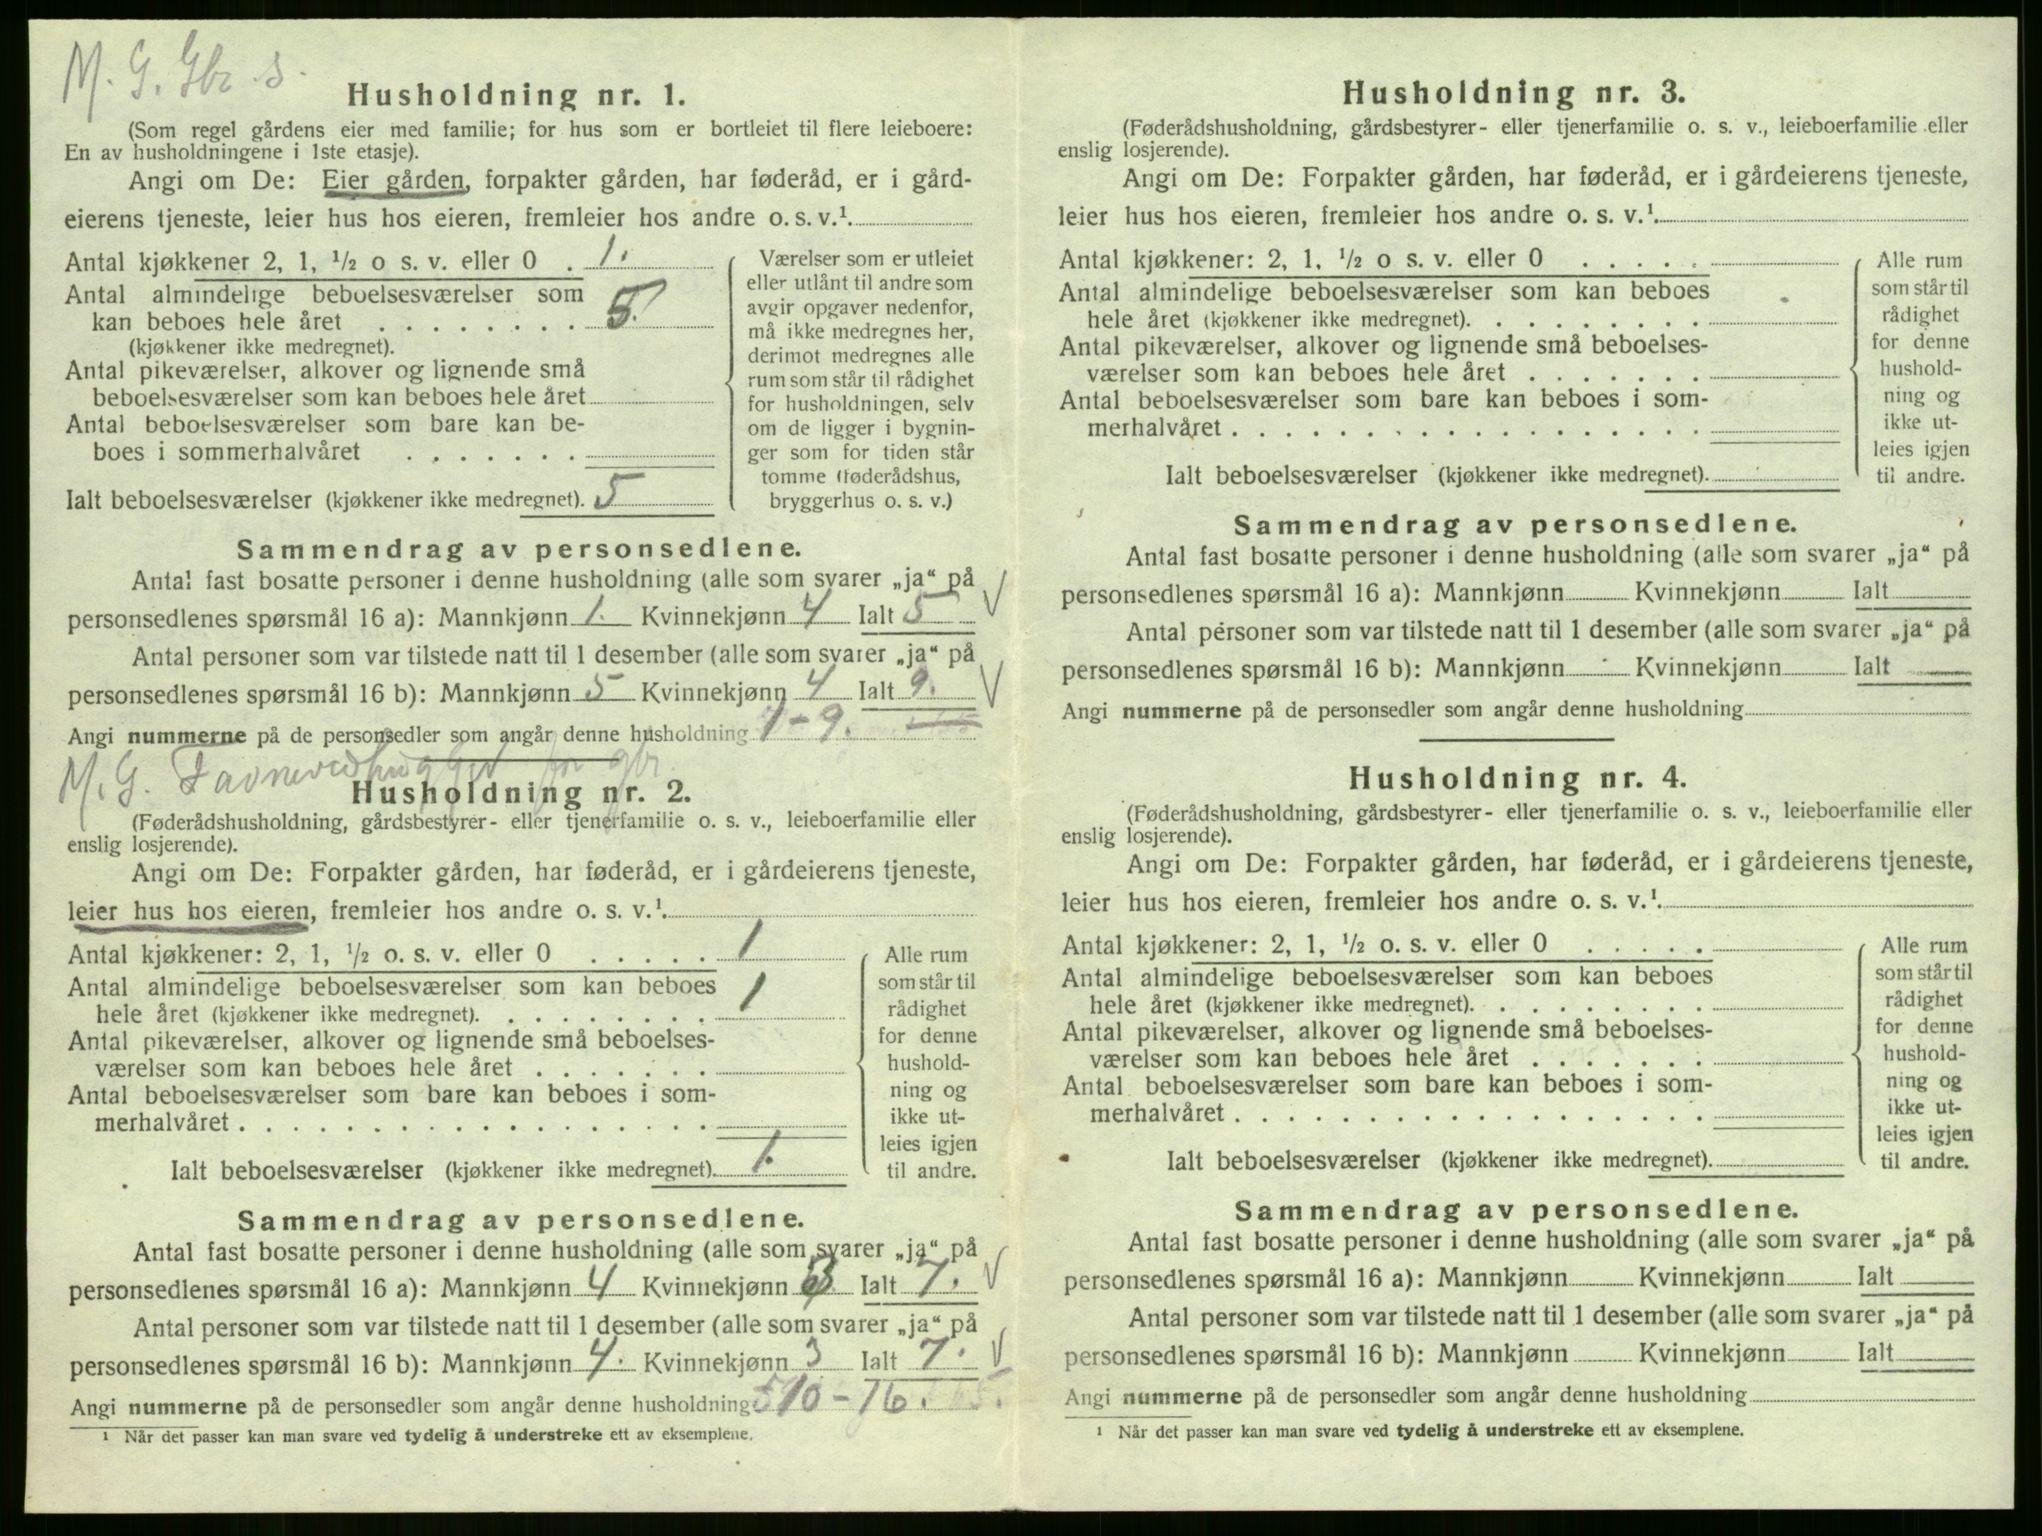 M. G. Gbr. s.
Husholdning nr. 1.
(Som regel gårdens eier med familie; for hus som er bortleiet til flere leieboere:
En av husholdningene i 1ste etasje).
Angi om De: Eier gården, forpakter gården, har føderåd, er i gård-
eierens tjeneste, leier hus hos eieren, fremleier hos andre o. s. v.¹
Antal kjøkkener 2, 1, ½ o s. v. eller 0 . 1.
Antal almindelige beboelsesværelser som
kan beboes hele året . . . . . . . . 5.
(kjøkkener ikke medregnet).
Antal pikeværelser, alkover og lignende små
beboelsesværelser som kan beboes hele året
Antal beboelsesværelser som bare kan be-
boes i sommerhalvåret . . . . . . .
Ialt beboelsesværelser (kjøkkener ikke medregnet). 5
Værelser som er utleiet
eller utlånt til andre som
avgir opgaver nedenfor,
må ikke medregnes her,
derimot medregnes alle
rum som står til rådighet
for husholdningen, selv
om de ligger i bygnin-
ger som for tiden står
tomme (føderådshus,
bryggerhus o. s. v.)
Sammendrag av personsedlene.
Antal fast bosatte personer i denne husholdning (alle som svarer „ja“ på
personsedlenes spørsmål 16 a): Mannkjønn 1. Kvinnekjønn 4 Ialt 5 √
Antal personer som var tilstede natt til 1 desember (alle som svarer „ja“ på
personsedlenes spørsmål 16 b): Mannkjønn 5 Kvinnekjønn 4 Ialt 9. √
Angi nummerne på de personsedler som angår denne husholdning 1-9.
M. G. Favnevedhugger for gbr.
Husholdning nr. 2.
(Føderådshusholdning, gårdsbestyrer- eller tjenerfamilie o. s. v., leieboerfamilie eller
enslig losjerende).
Angi om De: Forpakter gården, har føderåd, er i gårdeierens tjeneste,
leier hus hos eieren, fremleier hos andre o. s. v.¹.
Antal kjøkkener: 2, 1, ½ o. s. v. eller 0 . . . . . 1
Antal almindelige beboelsesværelser som kan beboes
hele året (kjøkkener ikke medregnet). . . . . . . . . 1
Antal pikeværelser, alkover og lignende små beboelses-
værelser som kan beboes hele året . . . . . . .
Antal beboelsesværelser som bare kan beboes i som-
merhalvåret . . . . . . . . . . . . . . . . . .
Ialt beboelsesværelser (kjøkkener ikke medregnet). 1.
Alle rum
som står til
rådighet
for denne
hushold-
ning og
ikke ut-
leies igjen
til andre.
Sammendrag av personsedlene.
Antal fast bosatte personer i denne husholdning (alle som svarer „ja“ på
personsedlenes spørsmål 16 a): Mannkjønn 4 Kvinnekjønn 3 Ialt 7. √
Antal personer som var tilstede natt til 1 desember (alle som svarer „ja“ på
personsedlenes spørsmål 16 b): Mannkjønn 4. Kvinnekjønn 3 Ialt 7. √
Angi nummerne på de personsedler som angår denne husholdning 10-16.
¹ Når det passer kan man svare ved tydelig å understreke ett av eksemplene.
Husholdning nr. 3.
(Føderådshusholdning, gårdsbestyrer- eller tjenerfamilie o. s. v., leieboerfamilie eller
enslig losjerende).
Angi om De: Forpakter gården, har føderåd, er i gårdeierens tjeneste,
leier hus hos eieren, fremleier hos andre o. s. v.¹.
Antal kjøkkener: 2, 1, ½ o s. v. eller 0 . . . . .
Antal almindelige beboelsesværelser som kan beboes
hele året (kjøkkener ikke medregnet). . . . . . . . .
Antal pikeværelser, alkover og lignende små beboelses-
værelser som kan beboes hele året . . . . . . .
Antal beboelsesværelser som bare kan beboes i som-
merhalvåret . . . . . . . . . . . . . . . . . .
Ialt beboelsesværelser (kjøkkener ikke medregnet).
Alle rum
som står til
rådighet
for denne
hushold-
ning og
ikke ut-
leies igjen
til andre.
Sammendrag av personsedlene.
Antal fast bosatte personer i denne husholdning (alle som svarer „ja“ på
personsedlenes spørsmål 16 a): Mannkjønn Kvinnekjønn Ialt
Antal personer som var tilstede natt til 1 desember (alle som svarer „ja“ på
personsedlenes spørsmål 16 b): Mannkjønn Kvinnekjønn Ialt
Angi nummerne på de personsedler som angår denne husholdning
Husholdning nr. 4.
(Føderådshusholdning, gårdsbestyrer- eller tjenerfamilie o. s. v., leieboerfamilie eller
enslig losjerende).
Angi om De: Forpakter gården, har føderåd, er i gårdeierens tjeneste,
leier hus hos eieren, fremleier hos andre o. s. v.¹.
Antal kjøkkener: 2, 1, ½ o. s. v. eller 0 . . . . .
Antal almindelige beboelsesværelser som kan beboes
hele året (kjøkkener ikke medregnet). . . . . . . . .
Antal pikeværelser, alkover og lignende små beboelses-
værelser som kan beboes hele året . . . . . . .
Antal beboelsesværelser som bare kan beboes i som-
merhalvåret . . . . . . . . . . . . . . . . . .
Ialt beboelsesværelser (kjøkkener ikke medregnet).
Alle rum
som står til
rådighet
for denne
hushold-
ning og
ikke ut-
leies igjen
til andre.
Sammendrag av personsedlene.
Antal fast bosatte personer i denne husholdning (alle som svarer „ja“ på
personsedlenes spørsmål 16 a): Mannkjønn Kvinnekjønn Ialt
Antal personer som var tilstede natt til 1 desember (alle som svarer „ja“ på
personsedlenes spørsmål 16 b): Mannkjønn Kvinnekjønn Ialt
Angi nummerne på de personsedler som angår denne husholdning
¹ Når det passer kan man svare ved tydelig å understreke ett av eksemplene.